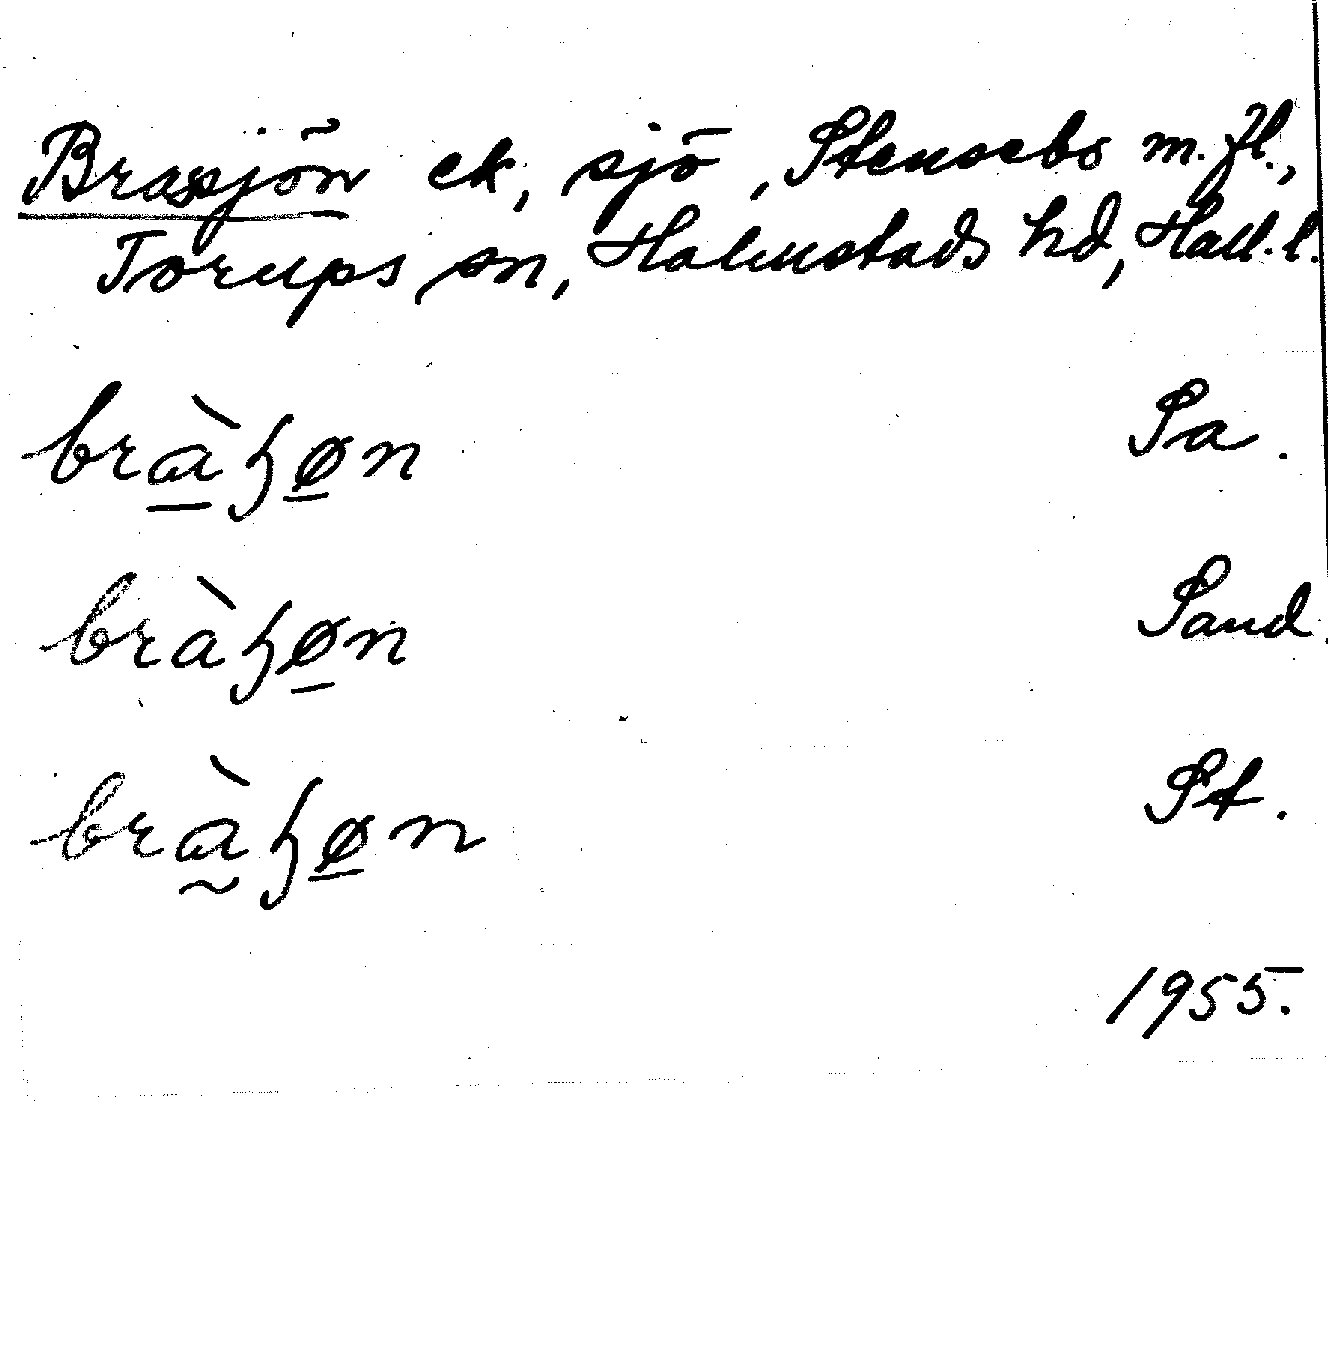 Brassjön ek, sjö, Stensebo m.fl.,
Torups sn, Halmstads hd, Hall. l.
brà̱ɧø̱n Sa.
bràɧø̱n Sand.
brà̰ɧø̱n St.
1955.